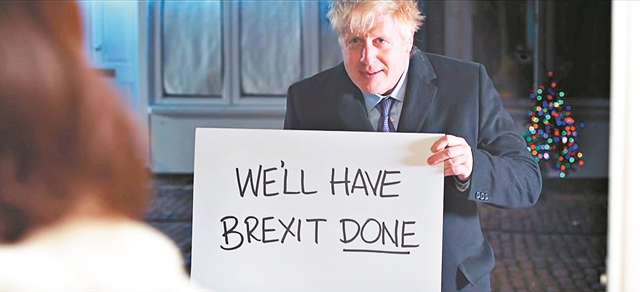 WE'LL HAVE
BREXIT DONE